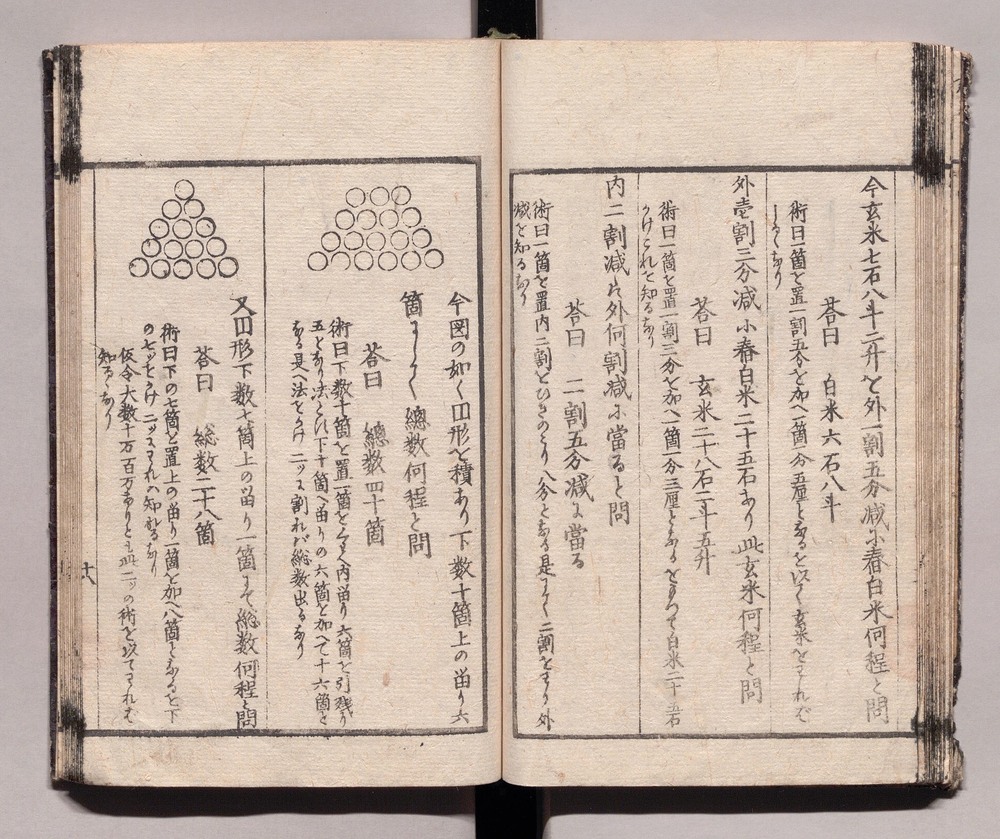 今玄米七石八斗二升を外一割五分減に舂白米何程と問
答曰　白米六石八斗
術曰一箇を置一割五分を加へ一箇一分五厘となるを以て玄米をされば
しるゝなり
外壱割三分減に舂白米二十五石あり此玄米何程と問
答曰　玄米二十八石二斗五升
術曰一箇を置一割三分を加へ一箇一分三厘となるをもつて白米二十五石
かけこれを知るなり
内二割減は外何割減に當ると問
答曰　二割五分減に當る
術曰一箇を置内二割をひきのこり八分となる是にて二割をわり外
減を知るなり
今圖の如く 形を積あり下数十箇上の留り六
箇にして總数何程と問
答曰　總数四十箇
術曰下数十箇を置一箇をくはへ内留り六箇を引残り
五となり法とし下十箇へ留りの六箇を加へて十六箇と
なる是へ法をかけ二ッに割れば総数出るなり
又 形下数七箇上の留り一箇にて總数何程と問
答曰　總数二十八箇
術曰下の七箇を置上の留り一箇を加へ八箇となるを下
の七ッをかけ二ッにわれば知るなり
仮令大数十万百万ありとも此二ッの術を以てすれば
知るゝなり
十八